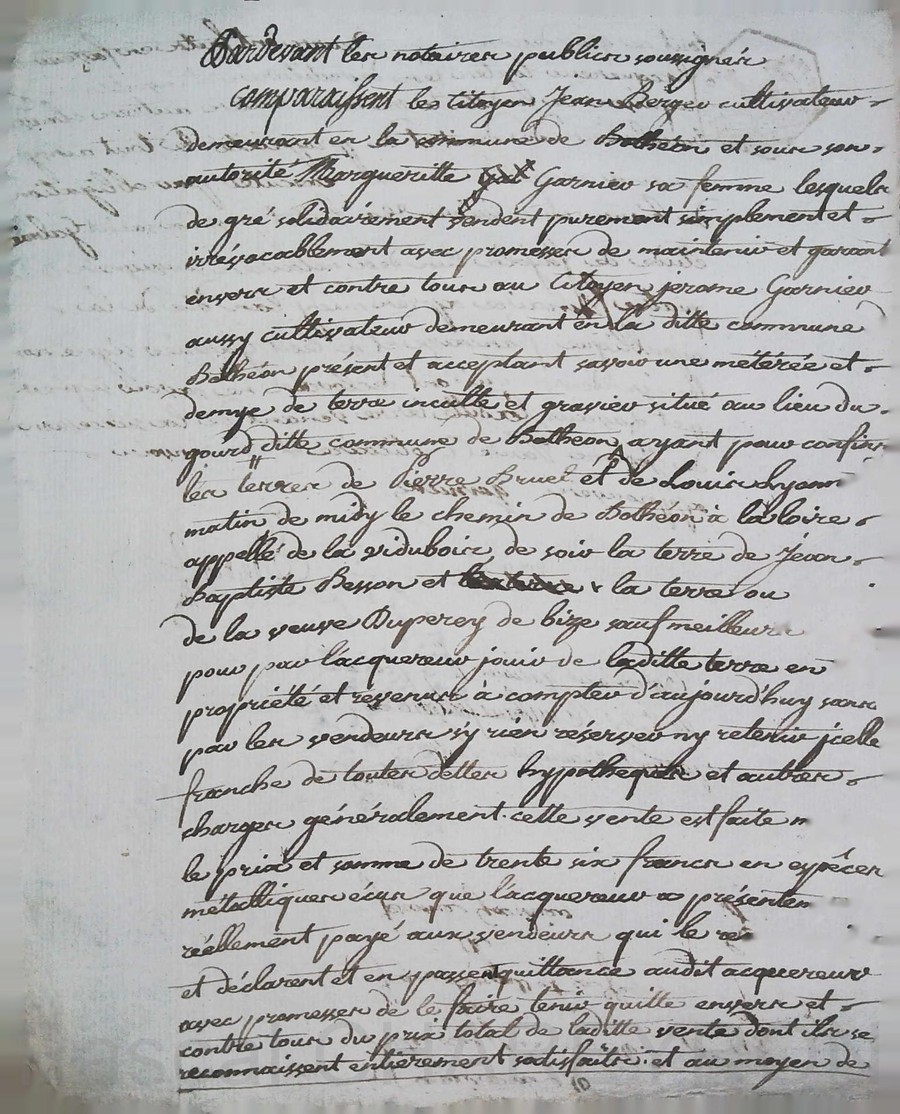 Pardevant les notaires publics soussignés
comparaissent le citoyen Jean Berger cultivateur
demeurant en la commune de Bothéon et sous son
autorité Margueritte Garnier sa femme lesquels
de gré solidairement vendent purement simplement et
irrévocablement avec promesses de maintenir et garant
envers et contre tous au Citoyen jerome Garnier
aussy cultivateur demeurant en la ditte commune
Bothéon présent et acceptant savoir une métérée et
demye de terre inculte et gravier situé au lieu du
gourd ditte commune de Bothéon, ayant pour confins
les terres de Pierre Bruel et de Louis Lyonn
matin de midy le chemin de Bothéon à la loire
appellé de la viduboir de soir la terre de Jean
Baptiste Besson et la terre ou
de la veuve Duperey de bize sauf meilleurs
pour par l'acquereur jouir de laditte terre en
propriété et revenus à compter d'aujourd'huy sans
par les vendeurs s'y rien réserver ny retenir jcelle
franche de touttes dettes hypotheques et autres
charges généralement. cette vente est faite m
le prix et somme de trente six francs en espéces
métalliques écus que l'acquereur a présentem
réellement payé aux vendeurs qui le re
et déclarent et en passent quittance audit acquereur
avec promesses de le faire tenir quitte envers et
contre tous du prix total de laditte vente dont ils se
reconnaissent entierement satisfaits. et au moyen de